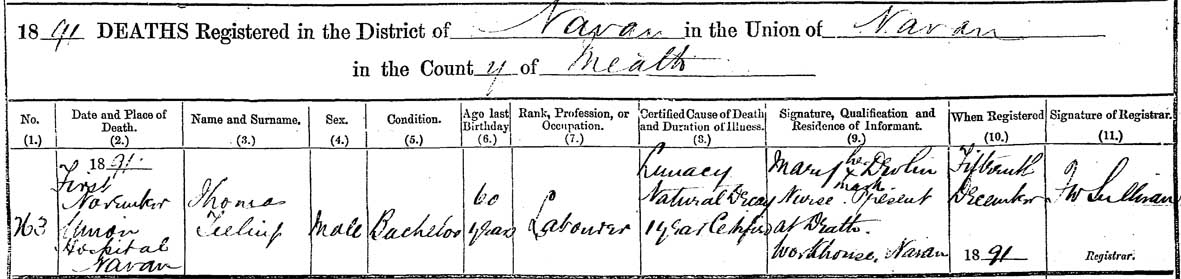 1891 DEATHS Registered in the District of Navan in the Union of Navan
in the County of Meath
No. (1.)
Date and Place of Death. (2.)
Name and Surname. (3.)
Sex. (4.)
Condition. (5.)
Age last Birthday (6.)
Rank, Profession, or Occupation. (7.)
Certified Cause of Death and Duration of Illness. (8.)
Signature, Qualification and Residence of Informant. (9.)
When Registered (10.)
Signature of Registrar. (11.)
763
1891.
First
November
Union
Hospital
Navan
Thomas
Male
Bachelor
60
years
Labourer
Lunacy
Natural Decay
1 year
Mary her x Devlin
mark
Nurse Present
at Death.
Workhouse, Navan
Fifteenth
December
1891
Sullivan
Registrar.